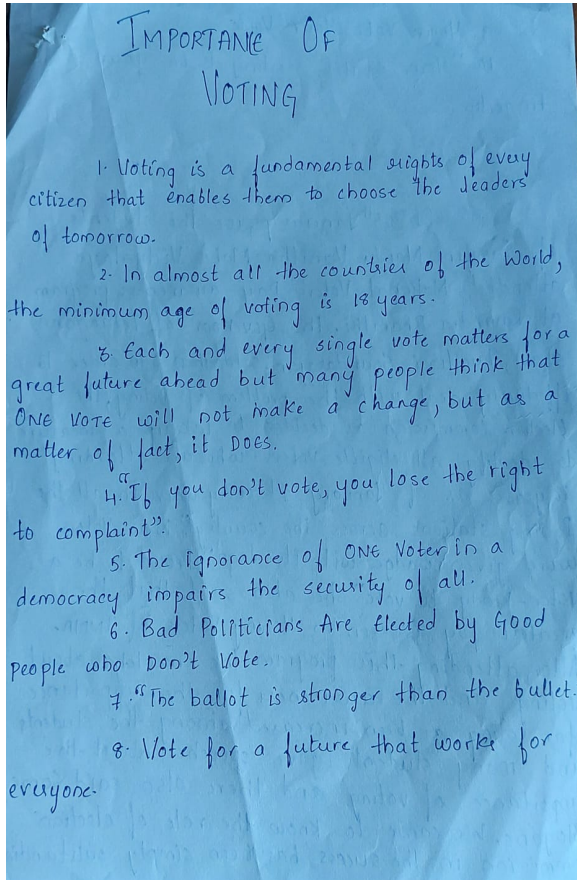 IMPORTANCE OF
VOTING
1. Voting is a fundamental rights of every
citizen that enables them to choose the leaders
of tomorrow.
2. In almost all the countries of the World,
the minimum age of voting is 18 years.
3. Each and every single vote matters for a
great future ahead but many people think that
ONE VOTE will not make a change, but as a
matter of fact, it DOES.
4. "If you don't vote, you lose the right
to complaint".
5. The ignorance of ONE Voter in a
democracy impairs the security of all.
6. Bad Politicians Are Elected by Good
People who Don't Vote.
7. "The ballot is stronger than the bullet.
8. Vote for a future that works for
everyone.